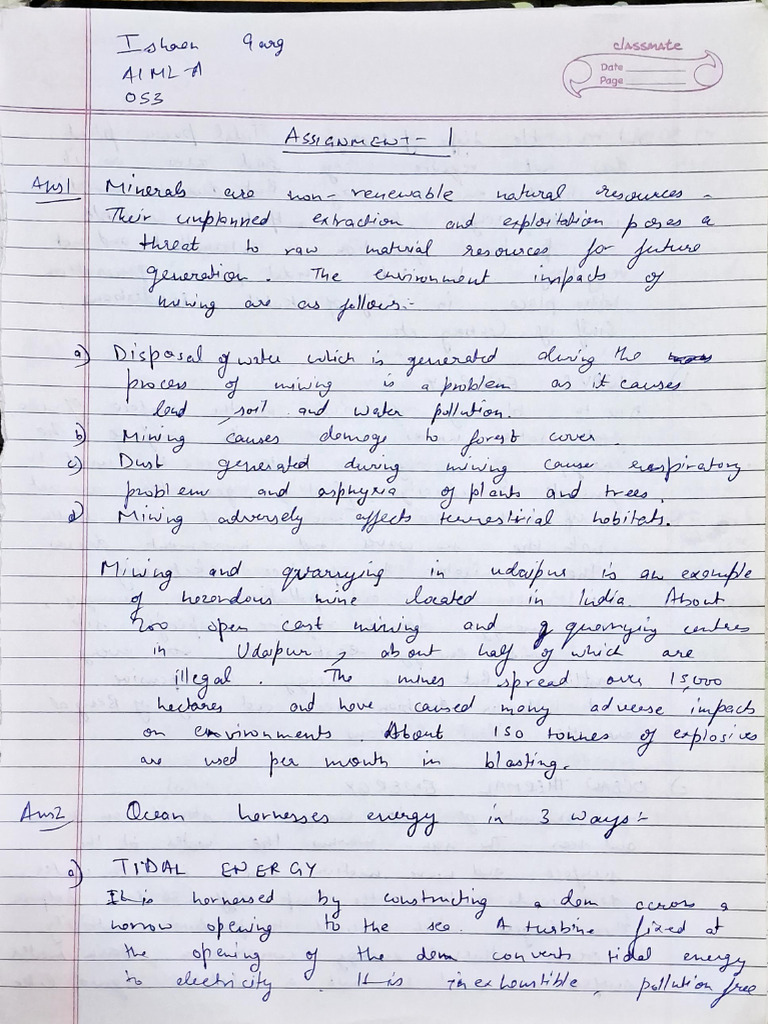 Ishaan Garg
classmate
AIML-A
Date
Page
053
ASSIGNMENT- 1
Ans1 Minerals are non-renewable natural resources.
Their unplanned extraction and exploitation poses a
threat to raw material resources for future
generation. The environment impacts of
mining are as follows:-
a) Disposal of water which is generated during the
process of mining is a problem as it causes
land, soil and water pollution.
b) Mining causes damage to forest cover.
c) Dust generated during mining cause respiratory
problem and asphyxia of plants and trees.
d) Mining adversely affects terrestrial habitats.
Mining and quarrying in udaipur is an example
of hazardous mine located in India. About
200 open cast mining and quarrying centres
in Udaipur, about half of which are
illegal. The mines spread over 15,000
hectares and have caused many adverse impacts
on environments. About 150 tonnes of explosives
are used per month in blasting.
Ans2 Ocean harnesses energy in 3 ways:-
a) TIDAL ENERGY
It is harnessed by constructing a dam across a
narrow opening to the sea. A turbine fixed at
the opening of the dam converts tidal energy
to electricity. It is inexhaustible, pollution free